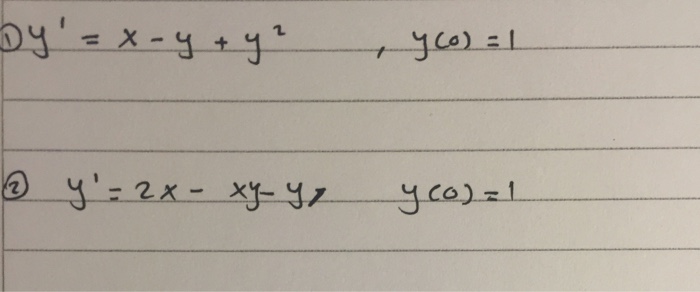 ① y' = x - y + y² , y(0) = 1
② y' = 2x - xy - y, y(0) = 1